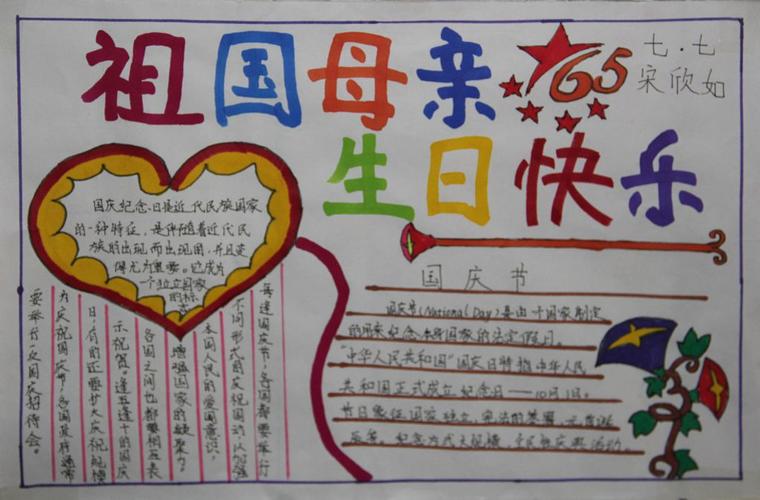 祖国母亲
65
七.七
宋欣如
生日快乐
国庆纪念日是近代民族国家
的一种特征,是伴随着近代民
族的出现而出现的,并且变
得尤为重要。它成为
一个独立国家
的标
志
每逢国庆节,各国都要举行
不同形式的庆祝活动,以加强
本国人民的爱国意识,
增强国家的凝聚力。
各国之间也都要相互表
示祝贺。逢五逢十的国庆
日,有的还要扩大庆祝规模
为庆祝国庆节,各国政府通常
要举行一次国庆招待会。
国庆节
国庆节(National Day)是由一个国家制定
的用来纪念本身国家的法定假日。
"中华人民共和国"国庆日特指中华人民
共和国正式成立纪念日——10月1日。
节日象征国家独立、宪法的签署、元首诞
辰等。纪念方式大规模、全民性庆典活动。